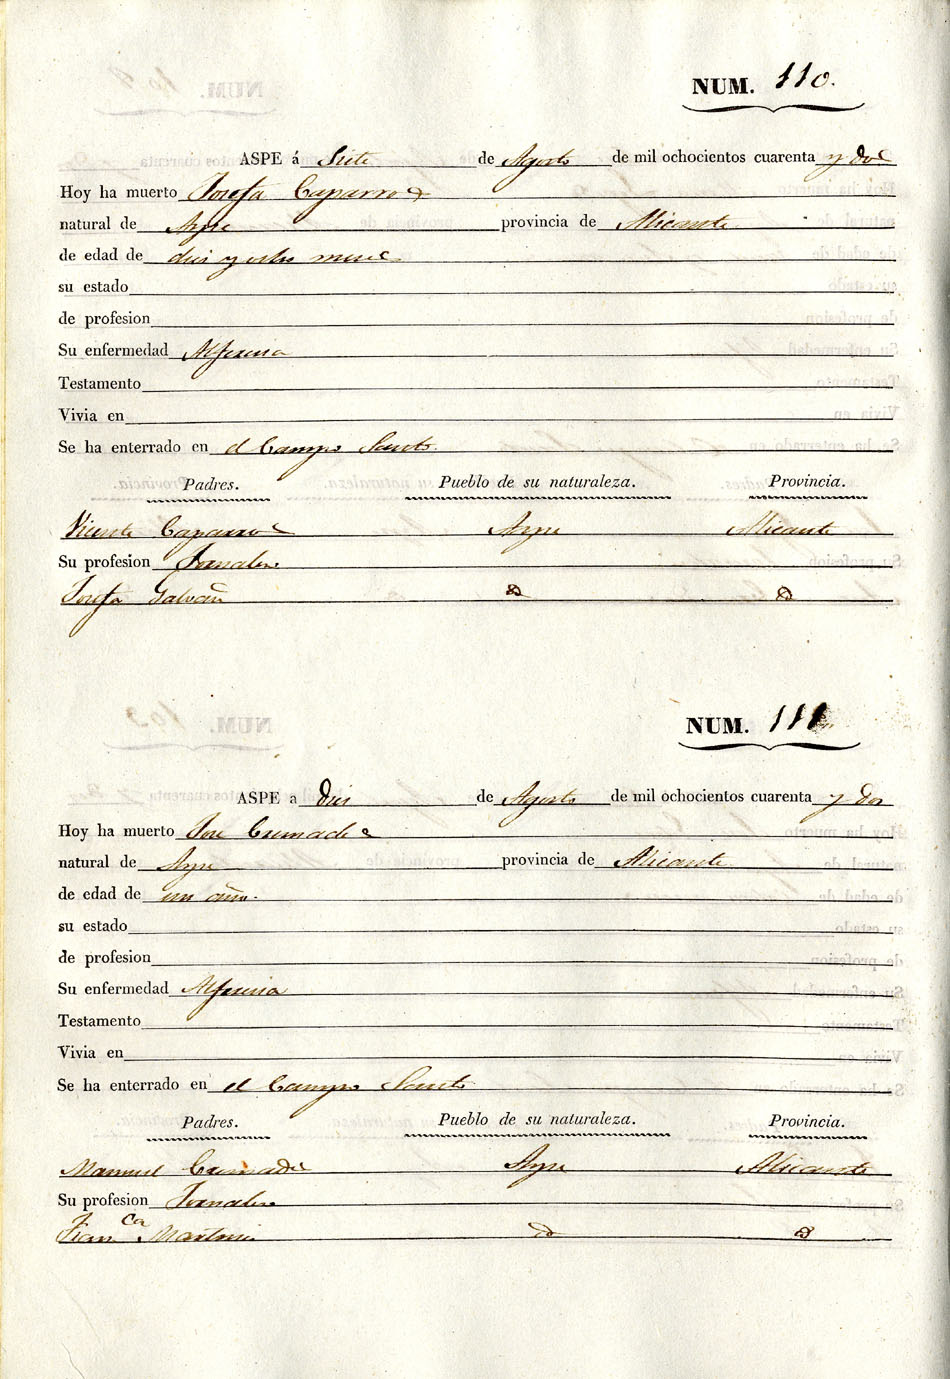 NUM. 110.
ASPE á Siete de Agosto de mil ochocientos cuarenta y dos
Hoy ha muerto Josefa Caparros
natural de Aspe provincia de Alicante
de edad de diez y ocho meses
su estado
de profesion
Su enfermedad Alferecia
Testamento
Vivia en
Se ha enterrado en el Campo Santo
Padres. Pueblo de su naturaleza. Provincia.
Vicente Caparros Aspe Alicante
Su profesion Jornalero
Josefa Galvañ
NUM. 111
ASPE a Diez de Agosto de mil ochocientos cuarenta y dos
Hoy ha muerto Jose Cremades
natural de Aspe provincia de Alicante
de edad de un año.
su estado
de profesion
Su enfermedad Alferecia
Testamento
Vivia en
Se ha enterrado en el Campo Santo
Padres. Pueblo de su naturaleza. Provincia.
Manuel Cremades Aspe Alicante
Su profesion Jornalero
Franca Martinez